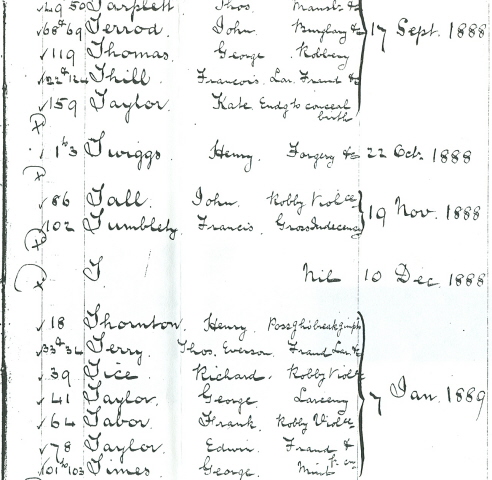 49 50 Tarplett Thos. Mansl. &c
68 & 69 Terrod John Burglary &c 17 Sept. 1888
119 Thomas. George Robbery
122 & 124 Thill Francois. Lar. Fraud &c
159 Taylor. Kate Endg to conceal birth
1 to 3 Twiggs. Henry. Forgery &c 22 Oct. 1888
86 Tall. John. Robby Viol ce
102 Tumblety. Francis. Gross Indecency 19 Nov. 1888
T. Nil 10 Dec 1888
18 Thornton. Henry.
33 & 34 Terry. Thos. Everson Fraud Lar. &c
39 Tice. Richard. Robby Viol ce
41 Taylor. George Larceny 7 Jan. 1889
64 Tabor. Frank. Robby Viol ce
78 Taylor. Edwin. Fraud &
101 to 103 Times. George.